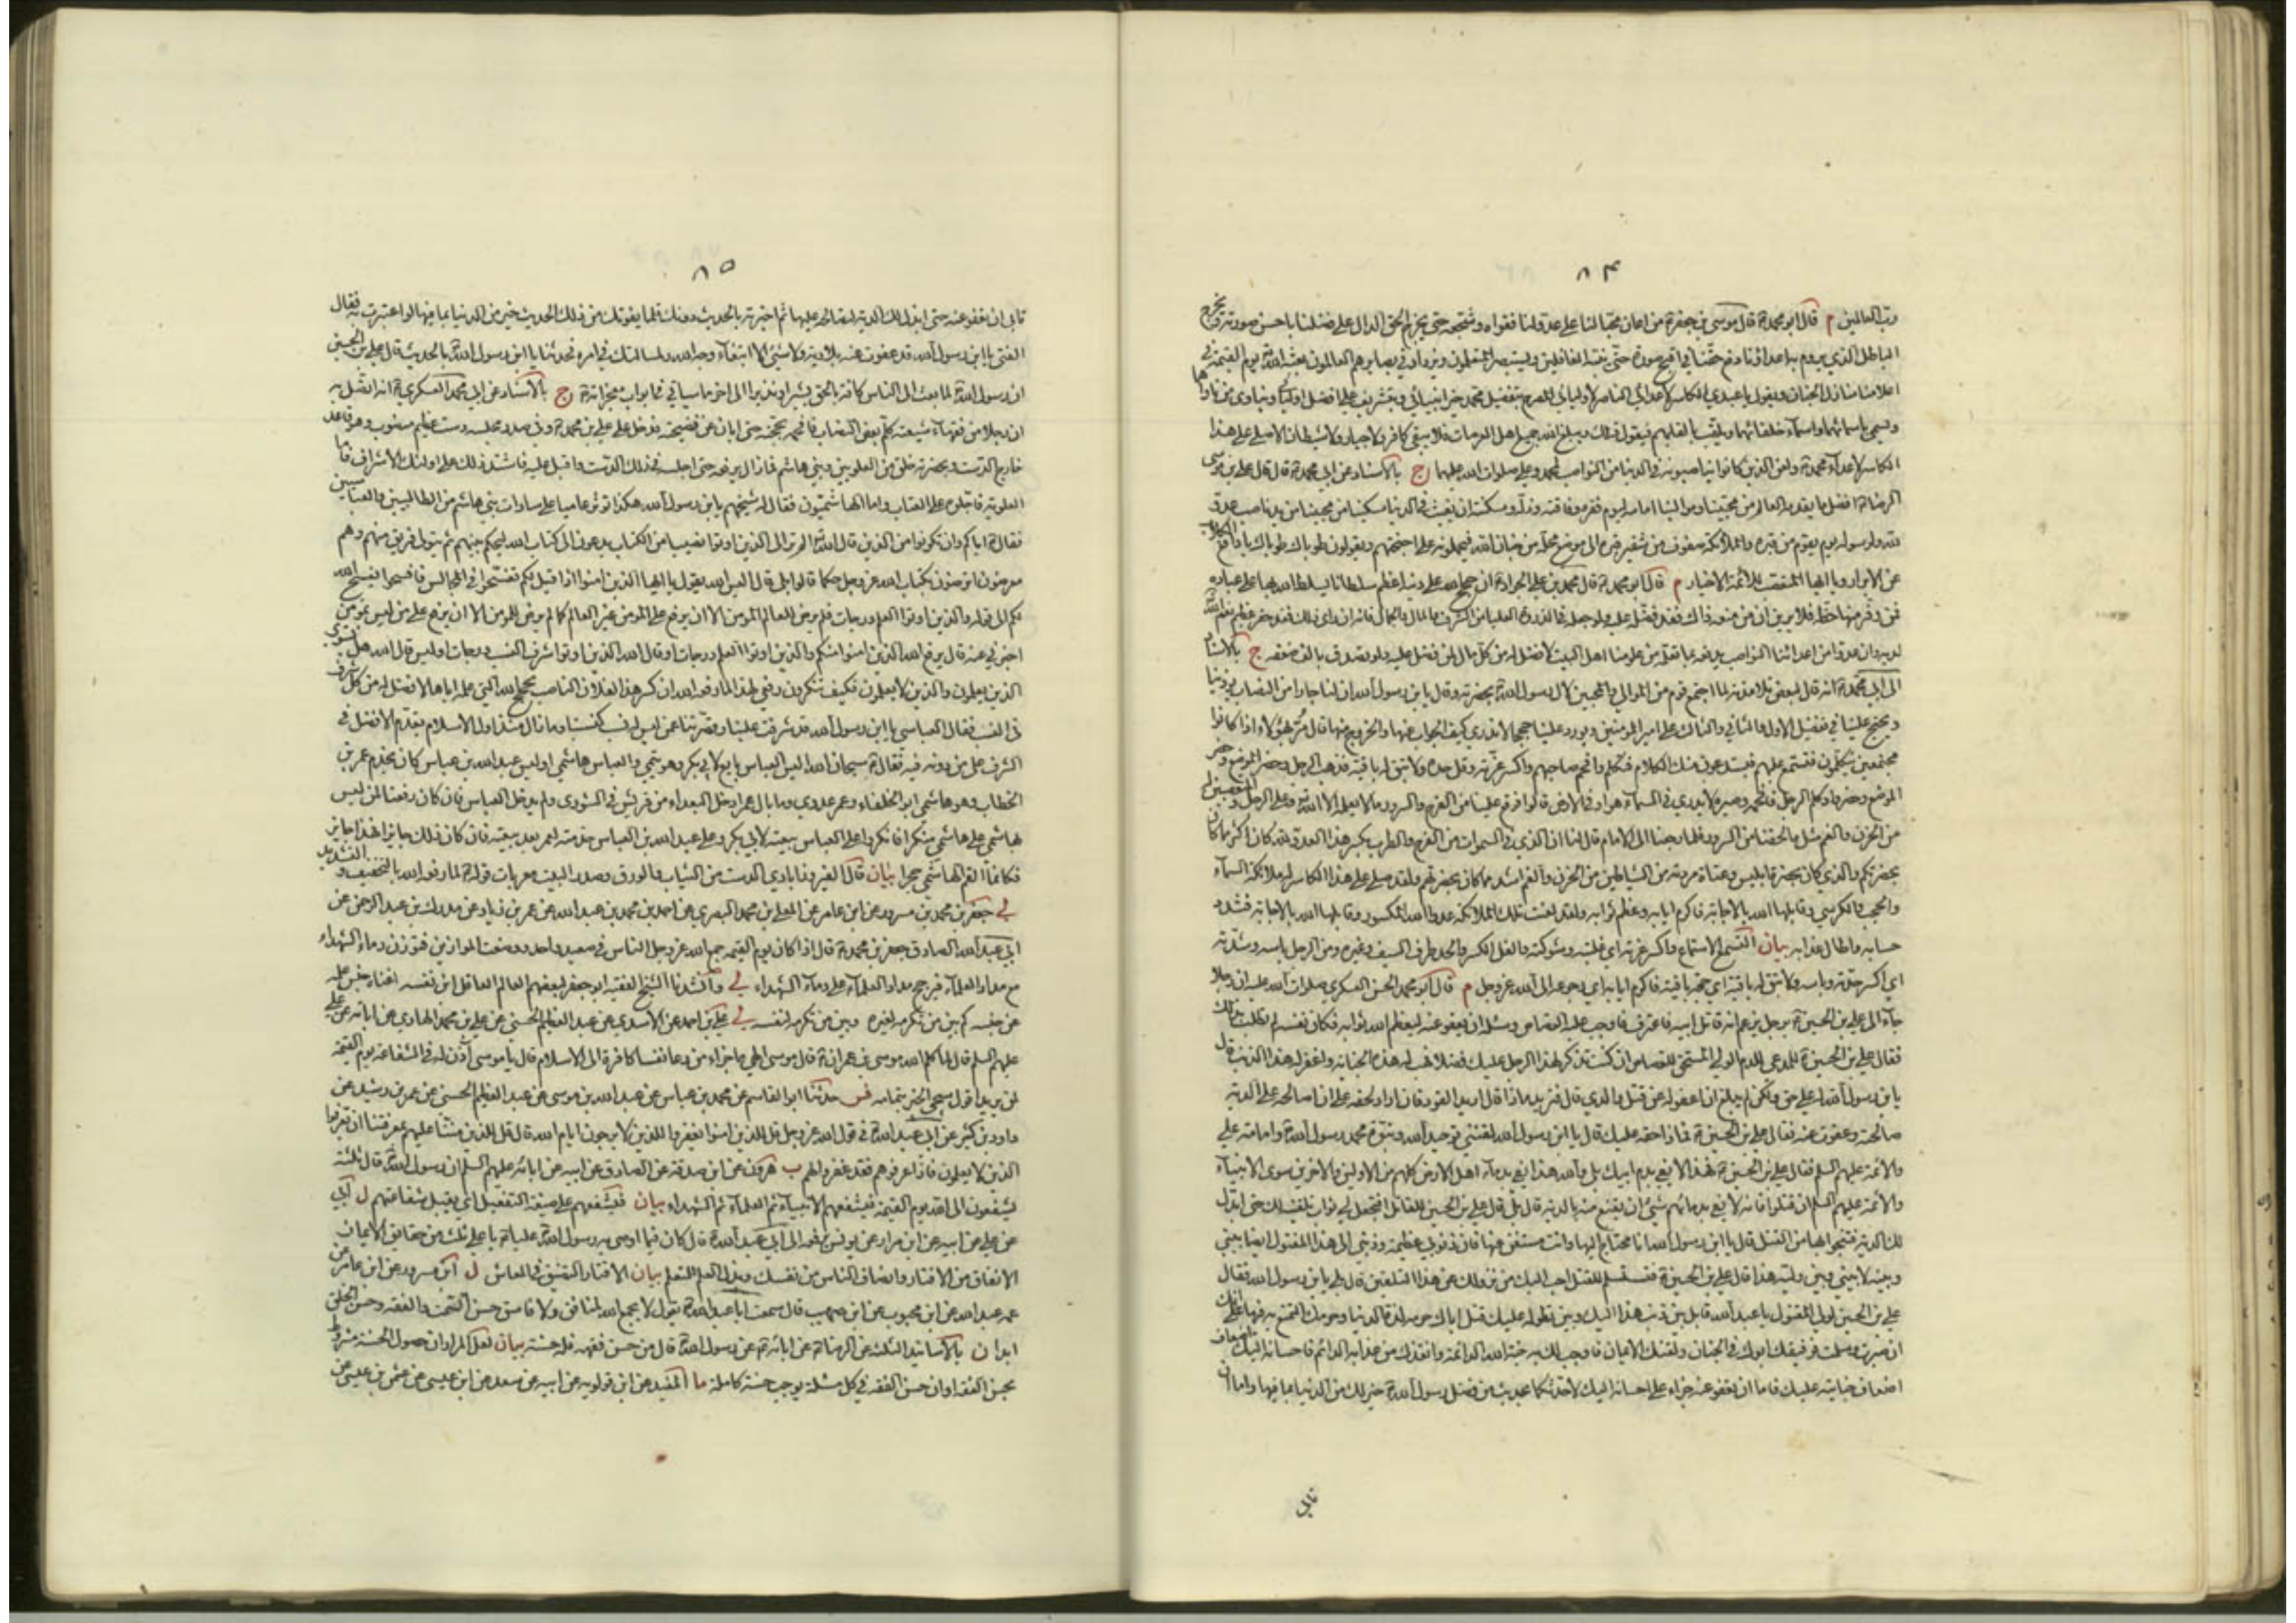 ٨۴
رب العالمين م قال ابو محمد ع قال موسى بن جعفر ع من اعان محبا لنا على عدو لنا فقواه وشجعه حتى يخرج الحق الدال على فضلنا باحسن صورته ويخرج
الباطل الذي يروم به اعداؤنا دفع حقنا في اقبح صورة حتى يتنبه الغافلين ويستبصر المتعلمون ويزداد في بصايرهم العالمون بعثه الله يوم القيمة في
اعلا منازل الجنان ويقول يا عبدي الكاسر لاعدائي الناصر لاوليائي المصرح بتفضيل محمد خير انبيائي وبتشريف علي افضل اوليائي ويناوي من ناواهما
ويسمي باسمائهما واسماء خلفائهما ويلقب بالقابهم فيقول ذلك ويبلغ الله جميع اهل العرصات فلا يبقى كافر ولا جبار ولا شيطان الا صلى على هذا
الكاسر لاعداء محمد ع ولعن الذين كانوا يناصبونه في الدنيا من النواصب لمحمد وعلي صلوات الله عليهما ج بالاسناد عن ابي محمد ع قال قال علي بن موسى
الرضا ع افضل ما يقدمه العالم من محبينا وموالينا امامه ليوم فقره وفاقته وذله ومسكنته ان يغيث في الدنيا مسكينا من محبينا من يد ناصب عدو
لله ولرسوله يوم يقوم من قبره والملائكة صفوف من شفير قبره الى موضع محله من جنان الله فيحملونه على اجنحتهم ويقولون طوباك طوباك يا دافع الكلاب
عن الابرار ويا ايها المتعصب للائمة الاخيار م قال ابو محمد ع قال محمد بن علي الجواد ع ان حجج الله على دينه اعظم سلطانا يسلط الله بها على عباده
فمن وفر منها حظه فلا يرين ان من منعه ذاك فقد فضله عليه ولو جعله في الذروة العليا من الشرف والمال والجمال فانه ان راى ذلك فقد حقر عظيم نعم الله
لديه وان عدوا من اعدائنا النواصب يدفعه بما تعلمه من علومنا اهل البيت لافضل له من كل مال لمن فضل عليه ولو تصدق بالف ضعفه ج بالاسناد
الى ابي محمد ع انه قال لبعض تلامذته لما اجتمع قوم من الموالي والمحبين لآل رسول الله ص بحضرته وقال يا بن رسول الله ان لنا جارا من النصاب يوذينا
ويحتج علينا في تفضيل الاول والثاني والثالث على امير المؤمنين ويورد علينا حججا لا ندري كيف الجواب عنها والخروج منها قال مر بهؤلاء اذا كانوا
مجتمعين يتكلمون فتسمع عليهم فيستدعون منك الكلام فتكلم وافحم صاحبهم واكسر غرته وفل حده ولا تبق له باقية فذهب الرجل وحضر الموضع وحضروا
الموضع وكلم الرجل فافحمه وصيره لا يدري في السماء هو او في الارض قالوا فوقع علينا من الفرح والسرور ما لا يعلمه الا الله وعلى الرجل والمتعصبين له
من الحزن والغم مثل ما لحقنا من السرور فلما رجعنا الى الامام قال لنا ان الذي في السموات من الفرح والطرب بكسر هذا العدو لله كان اكثر مما كان
بحضرتكم والذي كان بحضرة ابليس وعتاة مردته من الشياطين من الحزن والغم اشد مما كان بحضرتهم ولقد صلى على هذا الكاسر له ملائكة السماء
والحجب والكرسي وقابلها الله بالاجابة فاكرم ايابه وعظم ثوابه ولقد لعنت تلك الملائكة عدو الله المكسور وقابلها الله بالاجابة فشدد
حسابه واطال عذابه بيان التسمع الاستماع واكسر غرته اي غلبته وشوكته والفل الكسر والحد طرف السيف وغيره ومن الرجل باسه وشدته
اي اكسر حدته وباسه ولا تبق له باقية اي حجة باقية فاكرم ايابه اي رجوعه الى الله عز وجل م قال ابو محمد الحسن العسكري صلوات الله عليه ان رجلا
جاء الى علي بن الحسين ع برجل يزعم انه قاتل ابيه فاعترف فاوجب عليه القصاص وسئله ان يعفو عنه ليعظم الله ثوابه فكان نفسه لم تطب بذلك
فقال علي بن الحسين ع للمدعي للدم الولي المستحق للقصاص ان كنت تذكر لهذا الرجل عليك فضلا فهب له هذه الجناية واغفر له هذا الذنب قال
يا بن رسول الله له علي حق ولكن لم يبلغ ان اعفو له عن قتل والدي قال فتريد ماذا قال اريد القود فان اراد لحقه على ان اصالحه على الدية
صالحته وعفوت عنه فقال علي بن الحسين ع فما ذا حقه عليك قال يا ابن رسول الله لقنني توحيد الله ونبوة محمد رسول الله ص وامامة علي
والائمة عليهم السلم فقال علي بن الحسين ع فهذا لا يفي بدم ابيك بلى والله هذا يفي بدماء اهل الارض كلهم من الاولين والاخرين سوى الانبياء
والائمة عليهم السلم ان قتلوا فانه لا يفي بدمائهم شيئ ان يقتنع منه بالدية قال بلى قال علي بن الحسين للقاتل افتجعل لي ثواب تلقينك له حتى ابذل
لك الدية فتنجو بها من القتل قال يا ابن رسول الله انا محتاج اليها وانت مستغن عنها فان ذنوبي عظيمة وذنبي الى هذا المقتول ايضا بيني
وبينه لا بيني وبين وليه هذا قال علي بن الحسين ع فتستسلم للقتل احب اليك من نزولك عن هذا التلقين قال بلى يا بن رسول الله فقال
علي بن الحسين لولي المقتول يا عبد الله قابل بين ذنب هذا اليك وبين تطوله عليك قتل اباك حرمه لذة الدنيا وحرمك التمتع به فيها على انك
ان صبرت وسلمت فرفيقك ابوك في الجنان ولقنك الايمان فاوجب لك به جنة الله الدائمة وانقذك من عذابه الدائم فاحسانه اليك اضعاف
اضعاف جنايته عليك فاما ان تعفو عنه جزاء على احسانه اليك لاحدثكما بحديث من فضل رسول الله ص خير لك من الدنيا بما فيها واما ان
تابى
٨٥
تابى ان تعفو عنه حتى ابذل لك الدية لتصالحه عليها ثم اخبرته بالحديث دونك فلما يفوتك من ذلك الحديث خير من الدنيا بما فيها لو اعتبرت به فقال
الفتى يا ابن رسول الله قد عفوت عنه بلا دية ولا شيئ الا ابتغاء وجه الله ولمسالتك في امره فحدثنا يا ابن رسول الله بالحديث قال علي بن الحسين
ان رسول الله ص لما بعث الى الناس كافة بالحق بشيرا ونذيرا الى اخر ما سياتي في ابواب معجزاته ج بالاسناد عن ابي محمد العسكري ع انه اتصل به
ان رجلا من فقهاء شيعته كلم بعض النصاب فافحمه بحجته حتى ابان عن فضيحته فدخل على علي بن محمد ع وفي صدر مجلسه دست عظيم منصوب وهو قاعد
خارج الدست وبحضرته خلق من العلويين وبني هاشم فما زال يرفعه حتى اجلسه في ذلك الدست واقبل عليه فاشتد ذلك على اولئك الاشراف فاما
العلوية فاجلوه على العتاب واما الهاشميون فقال له شيخهم يا بن رسول الله هكذا تؤثر عاميا على سادات بني هاشم من الطالبيين والعباسيين
فقال ع اياكم وان تكونوا من الذين قال الله الم تر الى الذين اوتوا نصيبا من الكتاب يدعون الى كتاب الله ليحكم بينهم ثم يتولى فريق منهم وهم
معرضون اترضون بكتاب الله عز وجل حكما قالوا بلى قال اليس الله يقول يا ايها الذين امنوا اذا قيل لكم تفسحوا في المجالس فافسحوا يفسح الله
لكم الى قوله والذين اوتوا العلم درجات فلم يرض للعالم المؤمن الا ان يرفع على المؤمن غير العالم كما لم يرض للمؤمن الا ان يرفع على من ليس بمؤمن
اخبروني عنه قال يرفع الله الذين امنوا منكم والذين اوتوا العلم درجات او قال الله الذين اوتوا شرف النسب درجات اوليس قال الله هل يستوي
الذين يعلمون والذين لا يعلمون فكيف تنكرون رفعي لهذا لما رفعه الله ان كسر هذا لفلان الناصب بحجج الله التي علمه اياها لافضل له من كل شرف
في النسب فقال العباسي يا ابن رسول الله قد شرفت علينا وقصرتنا عمن ليس له نسب كنسبنا وما زال منذ اول الاسلام يقدم الافضل في
الشرف على من دونه فيه فقال ع سبحان الله اليس العباس بايع لابي بكر وهو تيمي والعباس هاشمي اوليس عبد الله بن عباس كان يخدم عمر بن
الخطاب وهو هاشمي ابو الخلفاء وعمر عدوي وما بال عمر ادخل البعداء من قريش في الشورى ولم يدخل العباس فان كان رفعنا لمن ليس
بهاشمي على هاشمي منكرا فانكروا على العباس بيعته لابي بكر وعلى عبد الله بن العباس خدمته لعمر بعد بيعته فان كان ذلك جايزا فهذا جايز
فكانما القم الهاشمي حجرا بيان قال الفيروزابادي الدست من الثياب والورق وصدر البيت معربات قوله ع لما رفعه الله بالتخفيف والتشديد
لي جعفر بن محمد بن مسرور عن ابن عامر عن المعلى بن محمد البصري عن احمد بن محمد بن عبد الله عن عمر بن زياد عن مدرك بن عبد الرحمن عن
ابي عبد الله الصادق جعفر بن محمد ع قال اذا كان يوم القيمه جمع الله عز وجل الناس في صعيد واحد ووضعت الموازين فتوزن دماء الشهداء
مع مداد العلماء فيرجح مداد العلماء على دماء الشهداء لي وانشدنا الشيخ الفقيه ابو جعفر لبعضهم العالم العاقل ابن نفسه اغناه جنس علمه
عن جنسه كم بين من تكرمه لغيره وبين من تكرمه لنفسه لي علي بن احمد عن الاسدي عن عبد العظيم الحسني عن علي بن محمد الهادي عن ابائه عن علي
عليهم السلم قال لما كلم الله موسى بن عمران ع قال موسى الهي ما جزاء من دعا نفسا كافرة الى الاسلام قال يا موسى آذن له في الشفاعة يوم القيمة
لمن يريد اقول سيجئ الخبر بتمامه فس حدثنا ابو القاسم عن محمد بن عباس عن عبد الله بن موسى عن عبد العظيم الحسني عن عمر بن رشيد عن
داود بن كثير عن ابي عبد الله ع في قول الله عز وجل قل للذين امنوا يغفروا للذين لا يرجون ايام الله قال قل للذين مننا عليهم بمعرفتنا ان يعرفوا
الذين لا يعلمون فاذا عرفوهم فقد غفروا لهم ب هرون عن ابن صدقة عن الصادق عن ابيه عن ابائه عليهم السلم ان رسول الله ص قال ثلثة
يشفعون الى الله يوم القيمة فيشفعهم الانبياء ثم العلماء ثم الشهداء بيان فيشفعهم على صيغة التفعيل اي يقبل شفاعتهم ل ابي
عن علي عن ابيه عن ابن مرار عن يونس يرفعه الى ابي عبد الله ع قال كان فيما اوصى به رسول الله ص عليا ع يا علي ثلث من حقايق الايمان
الانفاق من الاقتار وانصاف الناس من نفسك وبذل العلم للمتعلم بيان الاقتار التضيق في المعاش ل ابن مسرور عن ابن عامر عن
عمه عبد الله عن ابن محبوب عن ابن صهيب قال سمعت ابا عبد الله ع يقول لا يجمع الله لمنافق ولا فاسق حسن السمت والفقه وحسن الخلق
ابدا ن بالاسانيد الثلثة عن الرضا ع عن ابائه ع عن رسول الله ص قال من حسن فقهه فله حسنة بيان لعل المراد ان حصول الحسنة مشروط
بحسن الفقه او ان حسن الفقه في كل مسئلة يوجب حسنة كاملة ما المفيد عن ابن قولويه عن ابيه عن سعد عن ابن عيسى عن عثمن بن عيسى عن